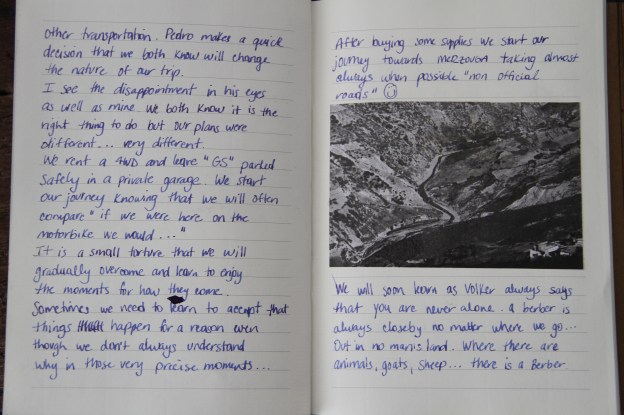 other transportation. Pedro makes a quick
decision that we both know will change
the nature of our trip.
I see the disappointment in his eyes
as well as mine. We both know it is the
right thing to do but our plans were
different... very different.
We rent a 4WD and leave "GS" parked
safely in a private garage. We start
our journey knowing that we will often
compare "if we were here on the
motorbike we would..."
It is a small torture that we will
gradually overcome and learn to enjoy
the moments for how they come.
Sometimes we need to learn to accept that
things happen for a reason even
though we don't always understand
why in those very precise moments...
After buying some supplies we start our
journey towards MERZOUGA taking almost
always when possible "non official
roads" ☺
We will soon learn as Volker always says
that you are never alone. A berber is
always closeby no matter where we go...
Out in no man's land. Where there are
animals, goats, sheep... there is a Berber.